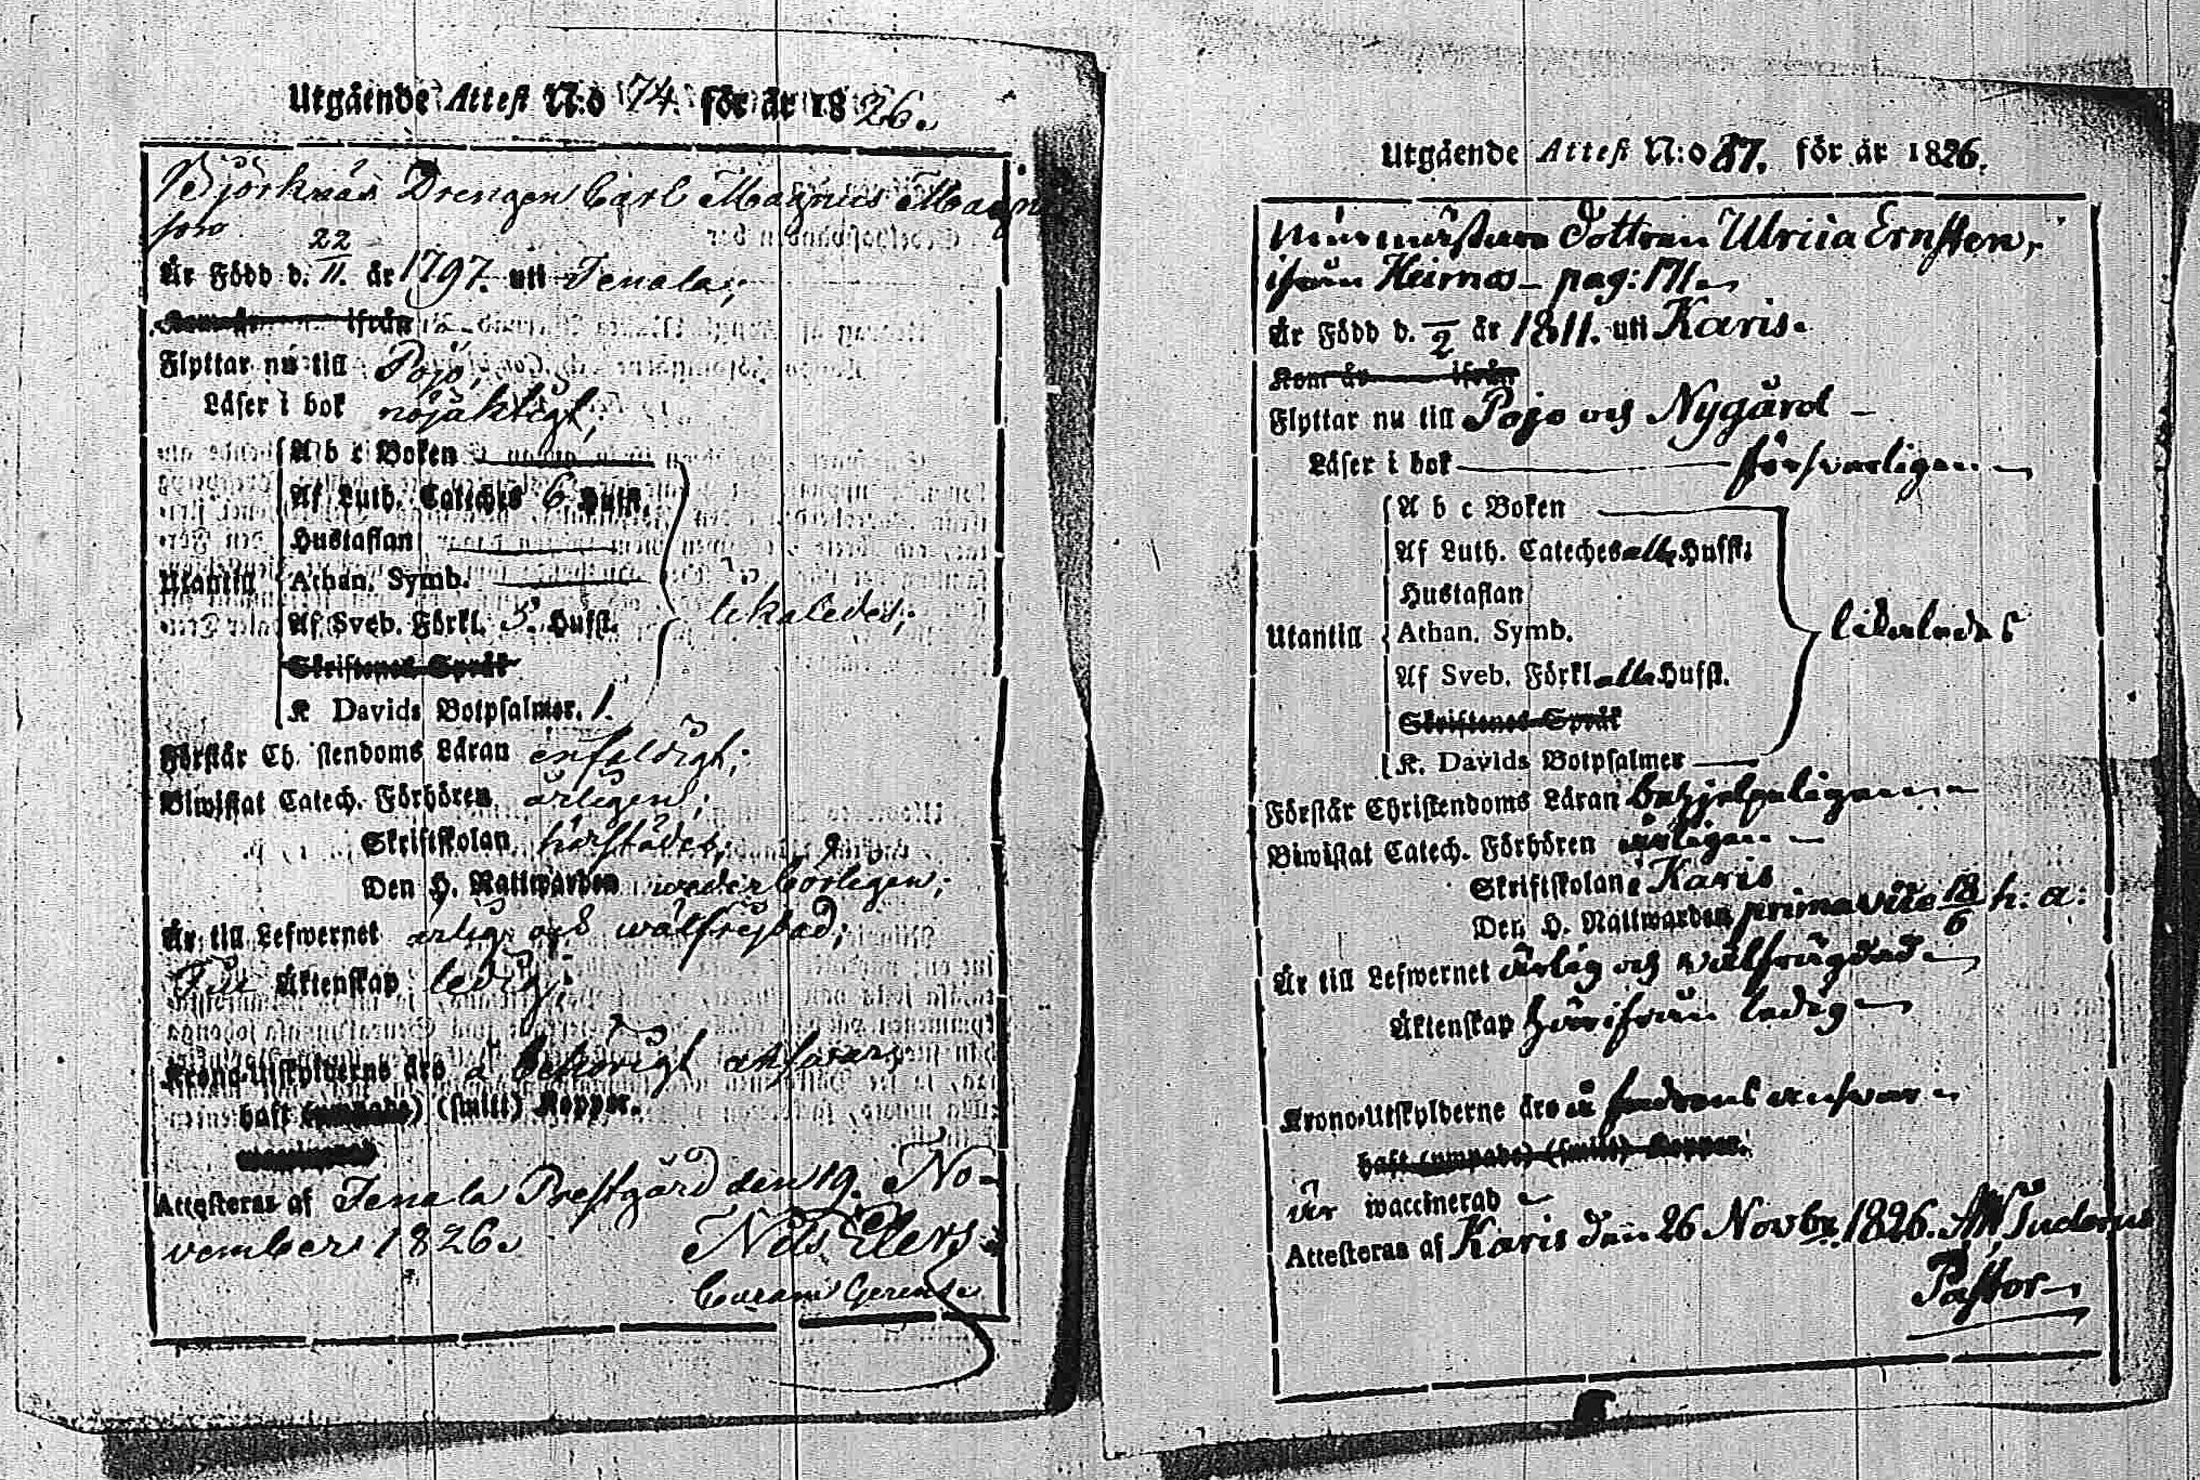 Utgående Attest N:o 74. för år 1826.
Björknäs Drengen Carl Magnus Magns
son
Är Född d. 22/11. år 1797. uti Tenala;
Kom år ifrån
Flyttar nu till Pojo,
Läser i bok nöjaktigt,
A b c Boken
Af Luth. Cateches 6. Hufst.
Hustaflan
Utantill Athan. Symb.
Af Sveb. Förkl. 3. Hufst. likaledes;
Skriftenes Språk
K Davids Botpsalmer. 1.
Förstår Ch istendoms Läran enfaldigt;
Biwistat Catech. Förhören årligen;
Skriftskolan härstädes,
Den H. Nattwarden wederbörligen;
Är till Lefwernet ärlig och wälfrejdad;
Till Äktenskap ledig;
Krono-Utskylderne äro å behörigt answar;
haft (ympade) (smitt) Koppor.
Attesteras af Tenala Prestgård den 19. No-
vember 1826.
Nils Elers.
Curam Gerens.
Utgående Attest N:o 87. för år 1826.
Murmästare Dottren Ulrica Ernsten,
ifrån pag: 171
Är Född d. —/2 år 1811. uti Karis.
Kom år ifrån
Flyttar nu till Pojo och Nygård —
Läser i bok försvarligen
A b c Boken
Af Luth. Cateches alla Hufst.
Hustaflan
Utantill Athan. Symb. likaledes
Af Sveb. Förkl. alla Hufst.
Skriftenes Språk
K. Davids Botpsalmer
Förstår Christendoms Läran behjelpeligen
Biwistat Catech. Förhören årligen
Skriftskolan i Karis
Den H. Nattwarden prima vice 18/6 h: a:
Är till Lefwernet ärlig och wälfrägdad
Äktenskap härifrån ledig
Krono-Utskylderne äro å fadrens answar
haft (ympade) (smitt) Koppor.
är waccinerad
Attesteras af Karis den 26 Novbr. 1826.
Pastor